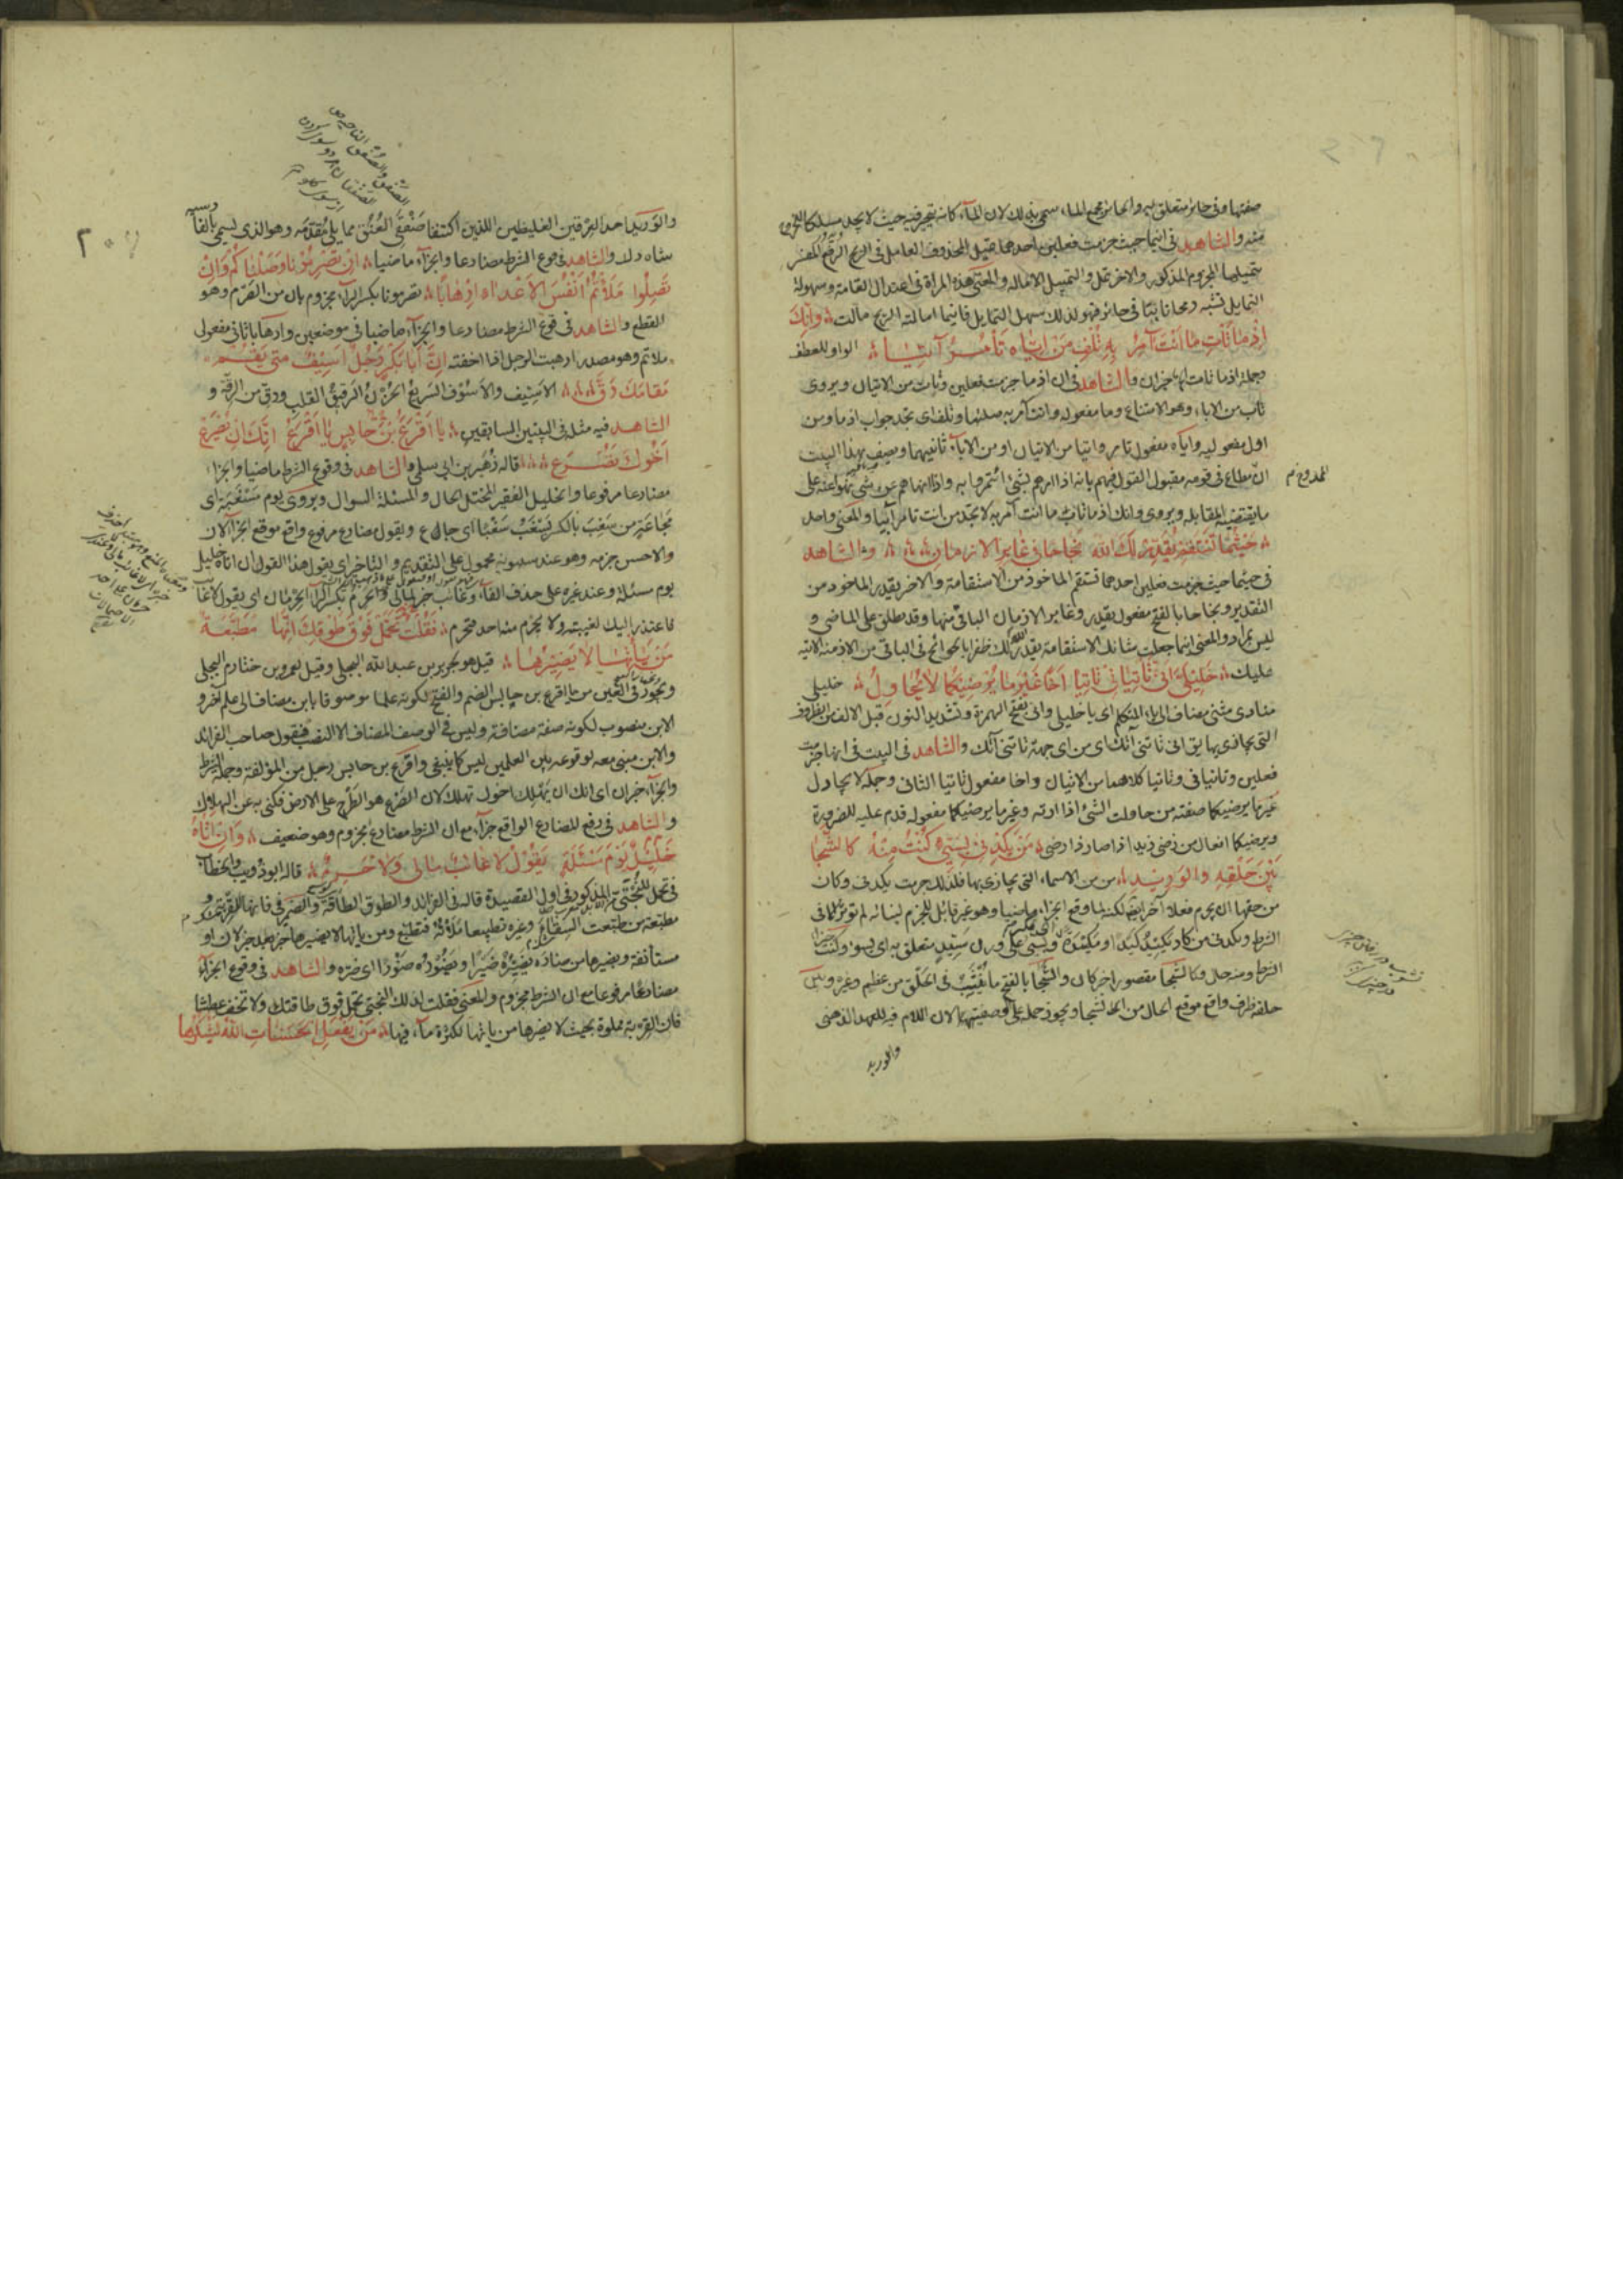 صفتها وفى حائر متعلق به والحائر مجمع الماء سمى بذلك لان الماء كانه يتحير فيه حيث لا يجد مسلكا للخروج
منه والشاهد فى اينما حيث جزمت فعلين احدهما تميل المحذوف العامل فى الريح الرفع المفسر
بتميلها المجزوم المذكور والاخر تمل والتمييل الاماله والمعنى هذه المرأة فى اعتدال القامة وسهولة
التمايل تشبه رمحا نابتا فى حائر فهو لذلك سهل التمايل فاينما امالته الريح مالت وانك
اذ ما تأت ما انت آمر به تلف من اياه تأمر آتيا الواو للعطف
وجملة اذما تأت الخ خبر ان والشاهد فى ان اذما جزمت فعلين وتأت من الاتيان ويروى
تاب من الاباء وهو الامتناع وما مفعوله وانت آمر به صلتها وتلف اى تجد جواب اذما ومن
اول مفعوليه واياه مفعول تأمر واتيا من الاتيان او من الاباء ثانيهما ويصف بهذا البيت
الممدوح م
ان مطاع فى قومه مقبول القول فيهم بانه اذا امرهم بشئ ائتمروا به واذا انهاهم عن شئ نهوا عنه على
ما يقتضيه المقابلة ويروى وانك اذ ما تأت ما انت آمر به لا تجد من انت تأمر آتيا والمعنى واحد
حيثما تستقم يقدر لك الله نجاحا فى غابر الازمان والشاهد
فى حيثما حيث جزمت فعلين احدهما تستقم الماخوذ من الاستقامة والاخر يقدر الماخوذ من
التقدير ونجاحا بالفتح مفعول يقدر وغابر الازمان الباقى منها وقد يطلق على الماضى و
ليس بمراد والمعنى اينما جعلت شانك الاستقامة يقدر الله لك ظفرا بالحوائج فى الباقى من الازمنة الاتية
عليك خليلى انى تأتيانى تأتيا اخا غير ما يرضيكما لا يحاول خليلى
منادى مثنى مضاف الى ياء المتكلم اى يا خليلى وانى بفتح الهمزة وتشديد النون قبل الالف من الظروف
التى يجازى بها يق انى تأتنى آتك اى من اى جهة تأتنى آتك والشاهد فى البيت فى انها جزمت
فعلين وتأتيانى وتأتيا كلاهما من الاتيان واخا مفعول تأتيا الثانى وجملة لا يحاول
غير ما يرضيكما صفته من حاولت الشئ اذا اردته وغير ما يرضيكما مفعوله قدم عليه للضرورة
ويرضيكما افعال من رضى زيد اذا صار ذا رضى من يكدنى بسئ كنت منه كالشجا
بين حلقه والوريد من من الاسماء التى يجازى بها فلذلك جزمت يكدنى وكان
من حقها ان يجزم فعلا آخر ايضا لكنه لما وقع الجزاء ماضيا وهو غير قابل للجزم لبنائه لم تؤثر فى
الشرط ويكدنى من كاد يكيد كيدا ومكيدة وبسئ على وزن سيد متعلق به اى بسوء وكنت جزاء
الشرط ومنه حال وكالشجا مقصور اخبر كان والشجا بالفتح ما ينشب فى الحلق من عظم وغيره وبين
حلقه ظرف واقع موقع الحال من الشجا ويجوز حمله على الوصفية لان اللام فيه للعهد الذهنى
والوريد
والوريد احد العرقين الغليظين اللذين اكتنفا صفقى العنق مما يلى مقدمه وهو الذى يسمى بالفارسيه
شاه رك والشاهد فى وقوع الشرط مضارعا والجزاء ماضيا ان تصرمونا وصلناكم وان
تصلوا ملأتم انفس الاعداء ارهابا تصرمونا بكسر الراء مجزوم بان من الصرم وهو
القطع والشاهد فى وقوع الشرط مضارعا والجزاء ماضيا فى موضعين وارهابا ثانى مفعولى
ملأتم وهو مصدر ارهبت الرجل اذا اخفته ان ابا بكر رجل اسيف متى يقم
مقامك رق الاسيف والاسوف السريع الحزن الرقيق القلب ورق من الرقة و
الشاهد فيه مثله فى البيتين السابقين يا اقرع بن حابس يا اقرع انك ان يصرع
اخوك تصرع قاله زهير بن ابى سلمى والشاهد فى وقوع الشرط ماضيا والجزاء
مضارعا مرفوعا والخليل الفقير المختل الحال والمسئلة السوال ويروى يوم مسغبة اى
مجاعة من سغب بالكسر يسغب سغبا اى جاع ويقول مضارع مرفوع واقع موقع الجزاء الان
والاحسن جزمه وهو عند سيبويه محمول على التقديم والتاخير اى يقول هذا القول ان اتاه خليل
يوم سئلة وعند غيره على حذف الفاء وغائب خبر لمالى والحرم بكسر الراء الحرمان اى يقول لا غائب
فاعتذر اليك لغيبته ولا يحرم منه احد فحرم فقلت تحمل فوق طوقك انها مطبعة
من يأتها لا يضيرها قيل هو لجرير بن عبد الله البجلى وقيل لعمرو بن خثارم البجلى
ويجوز فى العين من يا اقرع بن حابس الضم والفتح لكونه علما موصوفا بابن مضاف الى علم آخر و
الابن منصوب لكونه صفة مضافة وليس فى الوصف المضاف الا النصب فبقول صاحب الفرائد
والابن مبنى معه لوقوعه بين العلمين ليس كما ينبغى واقرع بن حابس رجل من المؤلفة وجملة الشرط
والجزاء خبر ان اى انك ان يهلك اخوك تهلك لان الصرع هو الطرح على الارض فكنى به عن الهلاك
والشاهد فى رفع المضارع الواقع جزاء مع ان الشرط مضارع مجزوم وهو ضعيف وان اتاه
خليل يوم مسئلة يقول لا غائب مالى ولا حرم قاله ابو ذويب والخطاب
فى تحمل للبختى المذكور فى اول القصيدة قاله فى الفرائد والطوق الطاقة والضمير فى فانها للقرية
مطبعة من طبعت السقاء وغيره تطبيعا ملأته فتطبع ومن يأتها لا يضيرها خبر بعد خبر لان او
مستأنفة ويضيرها من ضاره يضيره ضيرا ويضوره ضورا اى ضره والشاهد فى وقوع الجزاء
مضارعا مرفوعا مع ان الشرط مجزوم والمعنى فقلت لذلك البختى تحمل فوق طاقتك ولا تخف عطشا
فان القرية مملوة بحيث لا يضرها من ياتها لكثرة ماء فيها من يفعل الحسنات الله يشكرها